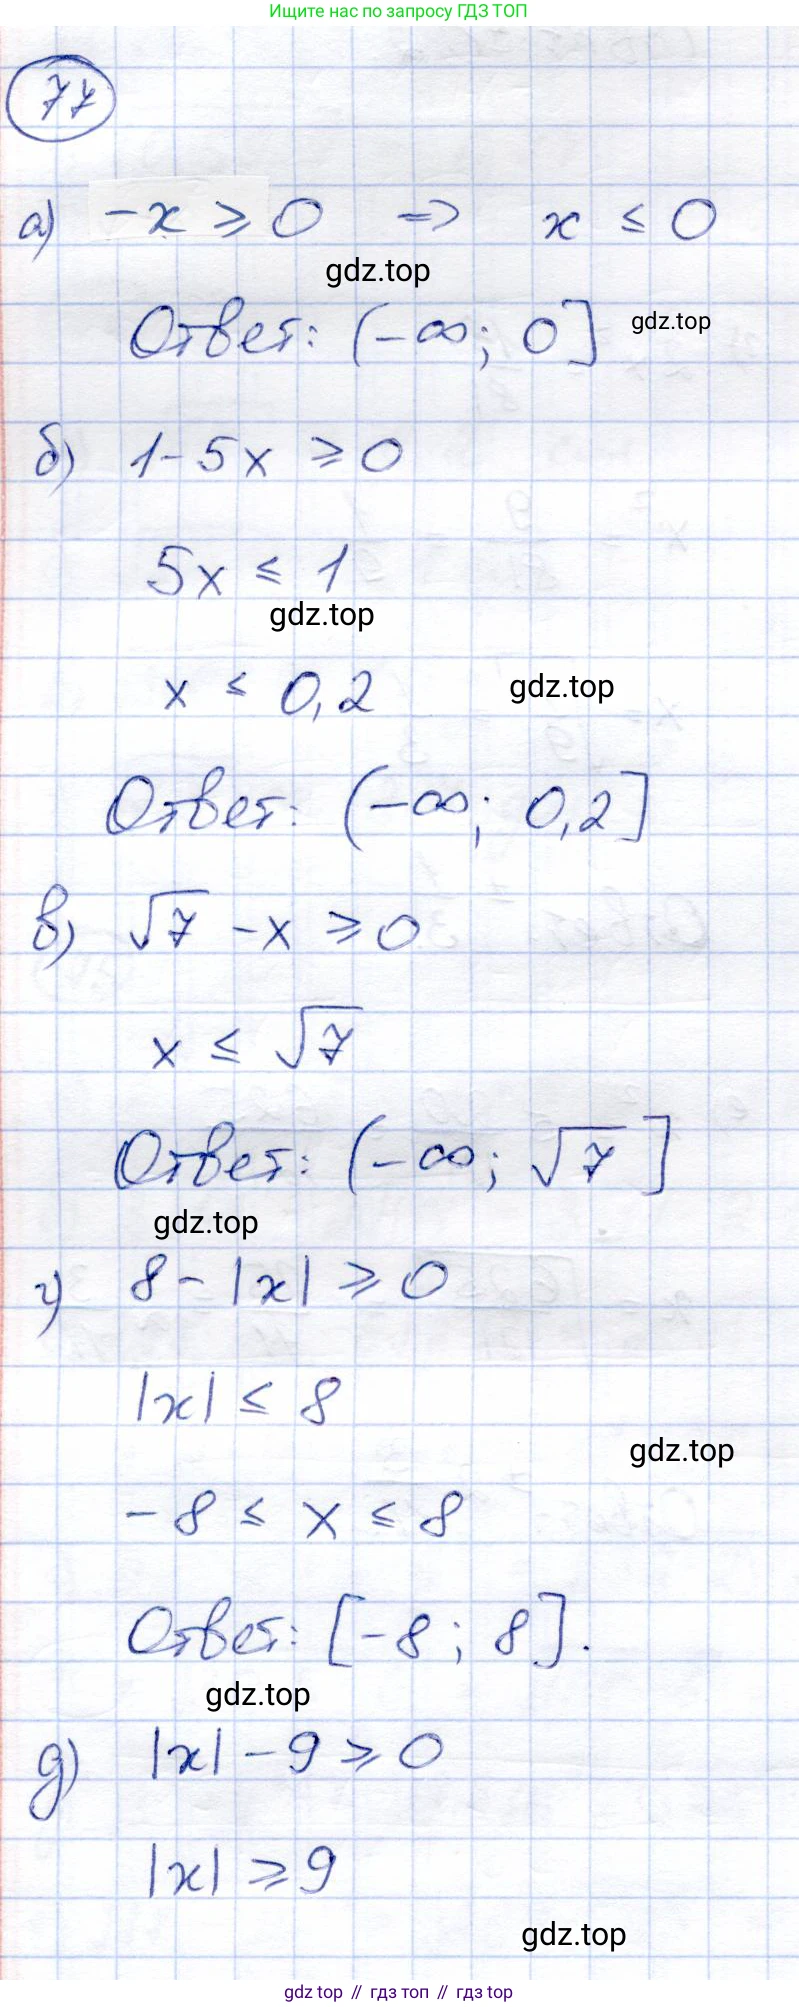 Ищите нас по запросу ГДЗ ТОП
77
а) -x ⩾ 0 => x ≤ 0
gdz.top
Ответ: (-∞; 0]
gdz.top
б) 1-5x ⩾ 0
5x ≤ 1
gdz.top
x ≤ 0,2
gdz.top
Ответ: (-∞; 0,2]
в) √7 - x ⩾ 0
x ≤ √7
Ответ: (-∞; √7]
gdz.top
г) 8 - |x| ⩾ 0
|x| ≤ 8
gdz.top
-8 ≤ x ≤ 8
Ответ: [-8; 8].
gdz.top
д) |x| - 9 ⩾ 0
|x| ⩾ 9
gdz.top
gdz top // гдз топ // гдз top